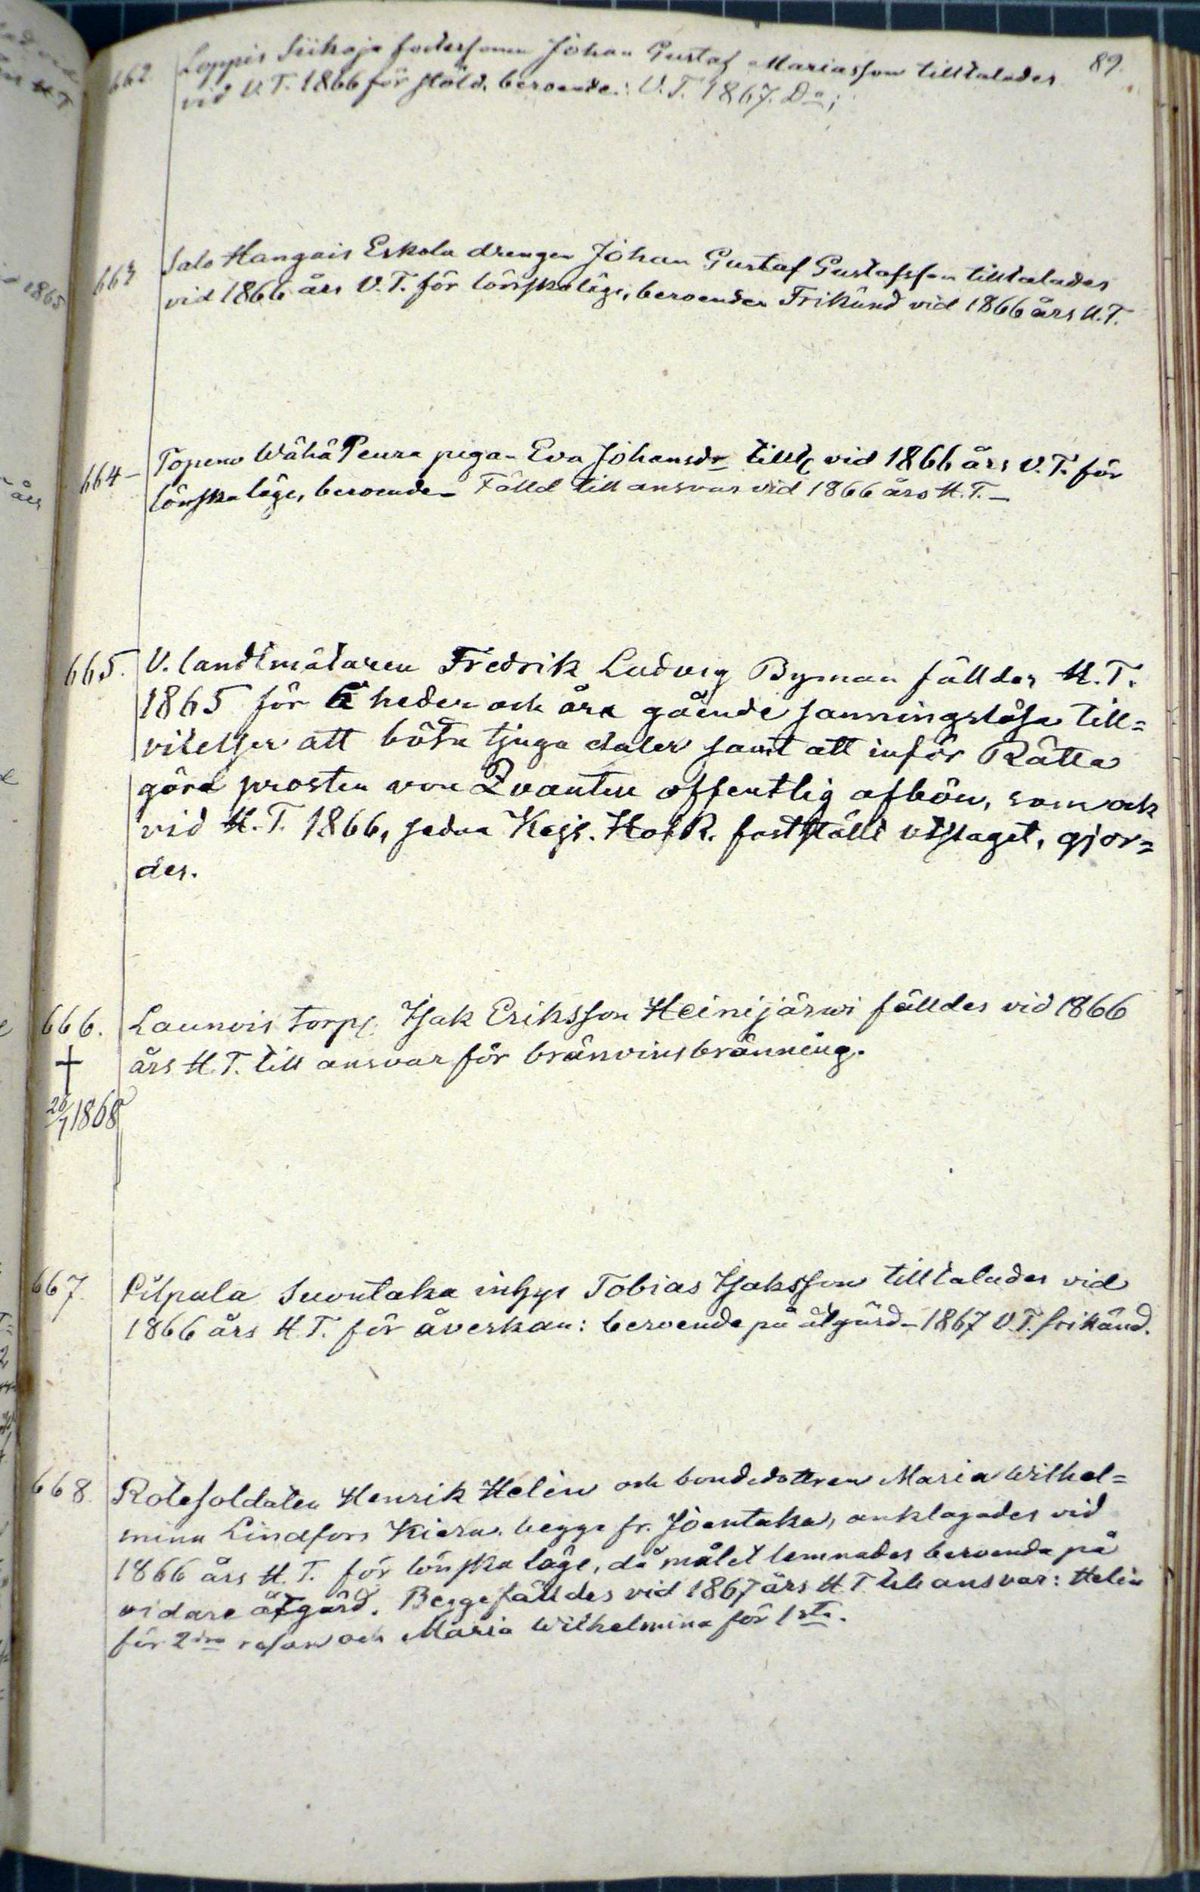 89.
662 Loppis Siikoja fodersonen Johan Gustaf Mariasson tilltalades
vid V.T. 1866 för stöld, beroende: V.T. 1867. Do;
663 Salo Hangais Eskola drengen Johan Gustaf Gustafsson tilltalades
vid 1866 års V.T. för lönskaläge, beroende. Frikänd vid 1866 års H.T.
664 – Topeno Wähä Peura pigan Eva Johansdr tillt. vid 1866 års V.T. för
lönskaläge, beroende – Fälld till ansvar vid 1866 års H.T. –
665. V. landtmätaren Fredrik Ludvig Byman fälldes H.T.
1865 för heder och ära gående sanningslösa till=
vitelser att böta tjugu daler samt att inför Rätta
göra prosten von Qvanten offentlig afbön, som ock
vid H.T. 1866, sedan Kejs. HofR. fastställt utslaget, gjor=
des.
666. Launois torp. Isak Eriksson Heinijärwi fälldes vid 1866
† års H.T. till ansvar för bränvinsbränning.
26/7 1868
667. Pilpala Suontaka inhys Tobias Isaksson tilltalades vid
1866 års H.T. för åverkan: beroende på åtgärd – 1867 V.T. frikänd.
668. Rotesoldaten Henrik Helin och bondedottren Maria Wilhel=
mina Lindfors Kiera, begge fr. Joentaka, anklagades vid
1866 års H.T. för lönskaläge, då målet lemnades beroende på
vidare åtgärd. Begge fälldes vid 1867 års H.T. till ansvar: Helin
för 2dra resan och Maria Wilhelmina för 1sta.